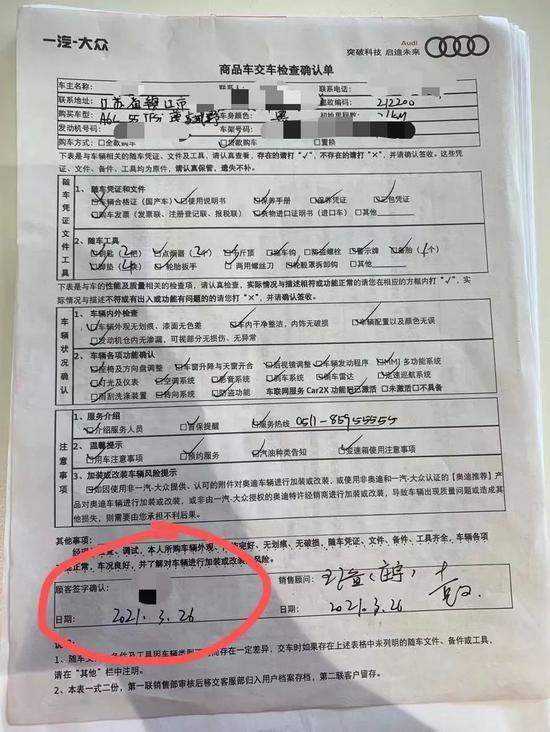 一汽-大众
Audi
突破科技 启迪未来
商品车交车检查确认单
车主名称:
联系电话:
联系地址: 江苏省镇江市 邮政编码: 212200
购买车型: A6L 55 TFSi 车身颜色: 黑 初始里程数:
发动机号码: 车架号码:
购车方式: □全款购车 □贷款购车 □置换
下表是与车辆相关的随车凭证、文件及工具,请认真查看,存在的请打“√”,不存在的请打“×”,并请确认签收。这些凭
证、文件、备件、工具均为原件,请认真保管,遗失不补。
随车凭证文件工具
1、随车凭证和文件
□车辆合格证(国产车) □使用说明书 □保养手册 □保养凭证 □三包凭证
□购车发票(发票联、注册登记联、报税联) □货物进口证明书(进口车) □其他
2、随车工具
□钥匙(2把) □点烟器(2个) □千斤顶 □拖车钩 □防盗螺栓 □警示牌 □备胎(1个)
□脚垫(4块) □轮胎扳手 □两用螺丝刀 □轮毂罩拆卸钩 □其他
下表是与车的性能及质量相关的检查项,请认真检查,实际情况与描述相符或功能正常的请您在相应的方框内打“√”,实
际情况与描述不符或有出入或功能有问题的的请您打“×”,并请确认签收。
车辆状况确认
1、车辆内外检查
□车辆外观无划痕、漆面无色差 □车内干净整洁,内饰无破损 □车辆配置以及颜色无误
□发动机仓内无渗漏、可视部分无损伤、无异常
2、车辆各项功能确认
□座椅及方向盘调整 □车窗升降与天窗开合 □后视镜调整 □车辆发动程序 □MMI 多功能系统
□灯光及仪表 □空调系统 □影音系统 □刹车系统 □倒车雷达 □定速巡航系统
□雨刮洗涤装置 □转向系统 □防盗功能 车联网服务 Car2X 功能□已激活 □未激活 □不具备
注意事项
1、服务介绍
□介绍服务人员 □首保提醒 □服务热线 0511-85955555
2、温馨提示
□用车注意事项 □预约服务 □汽油种类告知 □变速箱使用注意事项
3、加装或改装车辆风险提示
□如因使用非一汽-大众提供、认可的附件对奥迪车辆进行加装或改装,或使用非奥迪和一汽-大众认证的【奥迪推荐】产
品对奥迪车辆进行加装或改装,或非由一汽-大众授权的奥迪特许经销商进行加装或改装,导致车辆出现质量问题或造成其
他损失,则需要由您承担不利后果。
其他事项:
调试,本人所购车辆外观、完好、无划痕、无破损,随车凭证、文件、备件、工具齐全,车辆各项
正常,车况良好,并了解对车辆进行加装或改装风险。
顾客签字确认: 销售顾问:
日期: 2021.3.26 日期: 2021.3.26
1、随车文件、备件及工具因车辆类型不同而存在一定差异,交车时如果存在上述表格中未列明的随车文件、备件或工具,
请在“其他”栏中注明。
2、本表一式二份,第一联销售部审核后移交客服部归入用户档案存档,第二联客户留存。